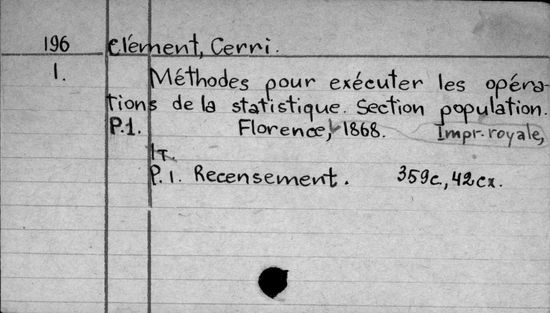 196 Clément, Cerri.
1. Méthodes pour exécuter les opéra-
tions de la statistique. Section population.
P.1. Florence, 1868. Impr. royale,
1т.
P.1. Recensement. 359с., 42сх.